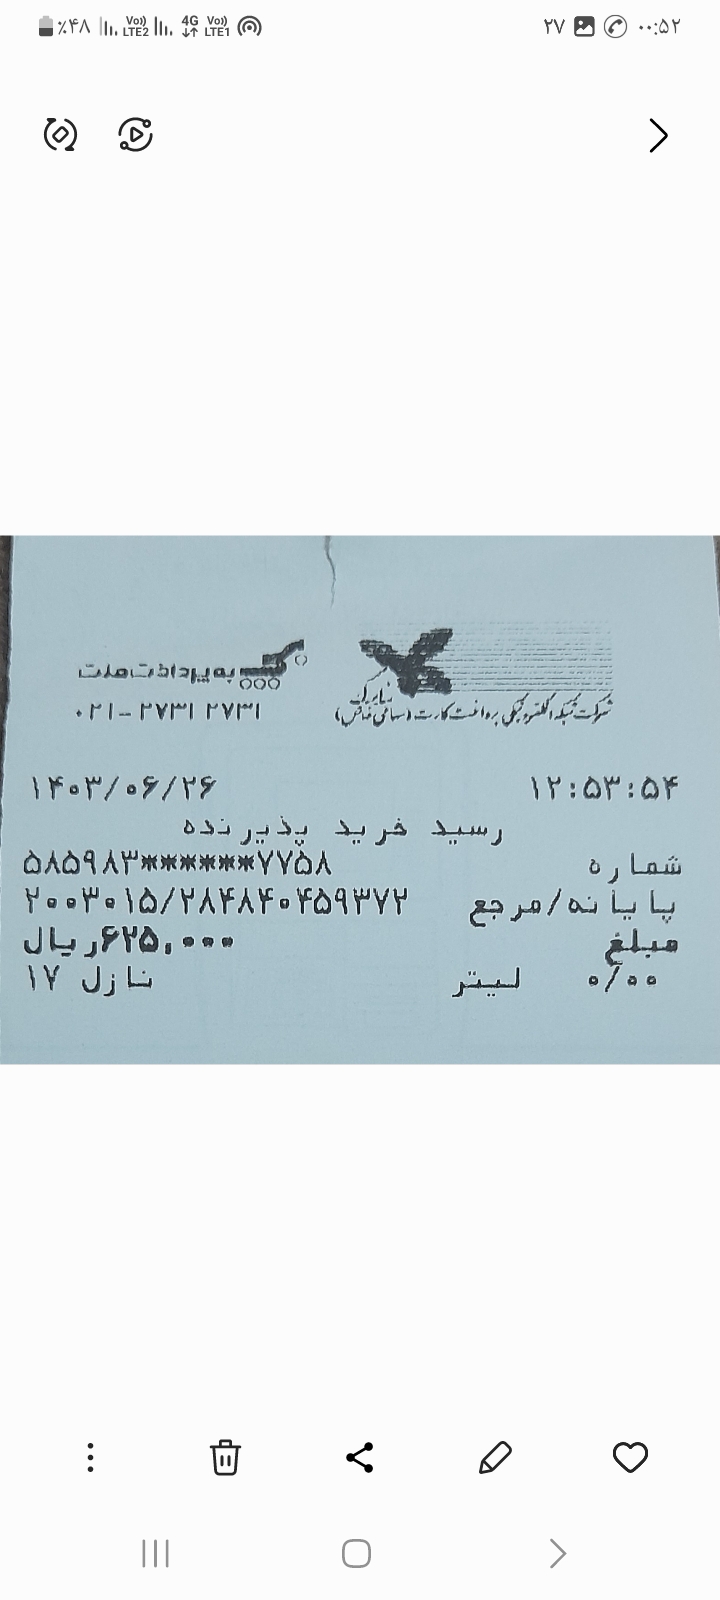 ٪۴۸ Vo)) LTE2 4G Vo)) LTE1 ۲۷ ۰۰:۵۲
به پرداخت ملت
۰۲۱-۲۷۳۱ ۲۷۳۱
شرکت شبکه الکترونیکی پرداخت کارت (سهامی خاص)
۱۴۰۳/۰۶/۲۶ ۱۲:۵۳:۵۴
رسید خرید پذیرنده
شماره ۵۸۵۹۸۳******۷۷۵۸
پایانه/مرجع ۲۰۰۳۰۱۵/۲۸۴۸۴۰۴۵۹۳۷۲
مبلغ ۶۲۵,۰۰۰ریال
۰/۰۰ لیتر نازل ۱۷